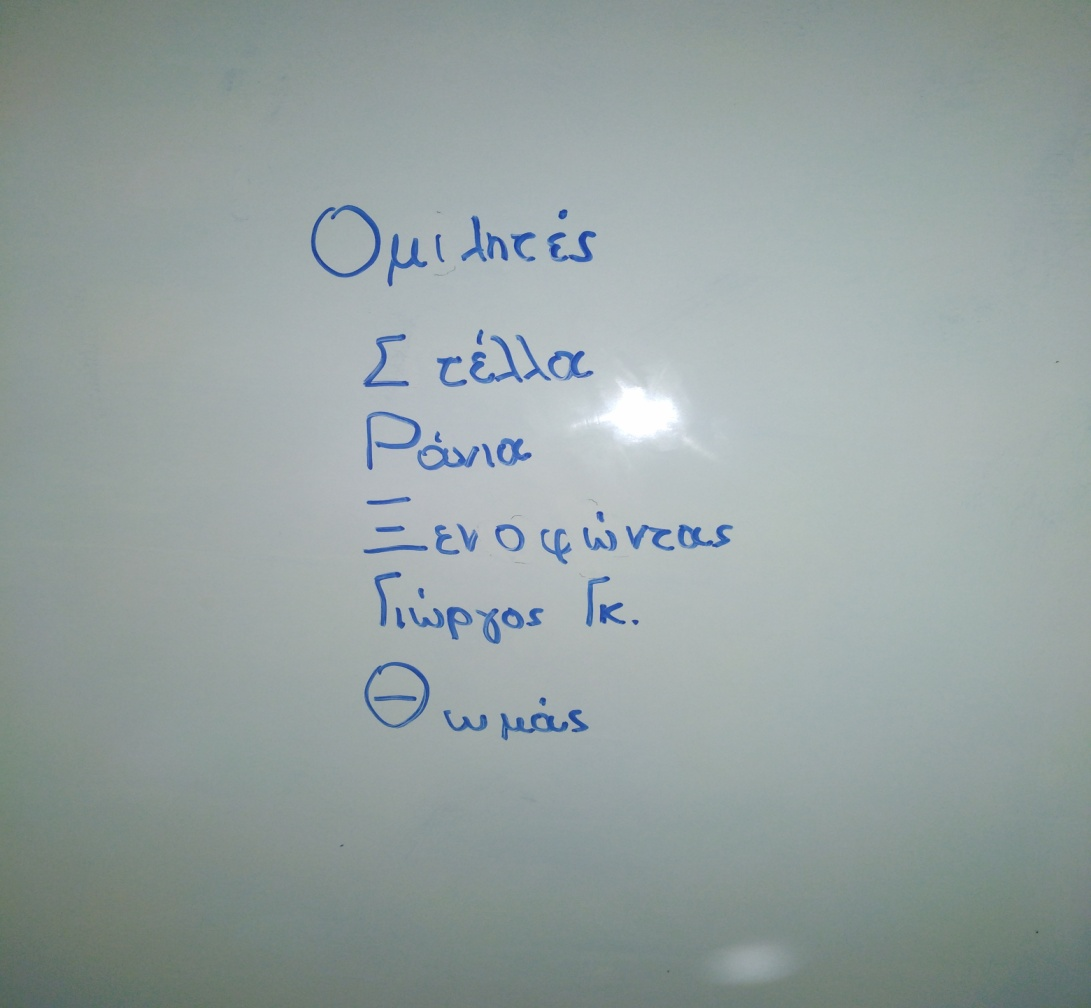 Ομιλητές
Στέλλα
Ράνια
Ξενοφώντας
Γιώργος Γκ.
Θωμάς